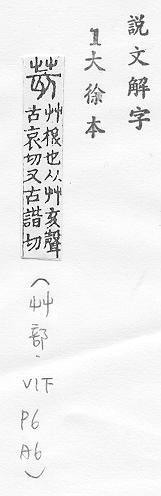 説文解字
1大徐本
荄 艸根也从艸亥聲
古哀切又古諧切
(艸部. V1下
P6
A6)